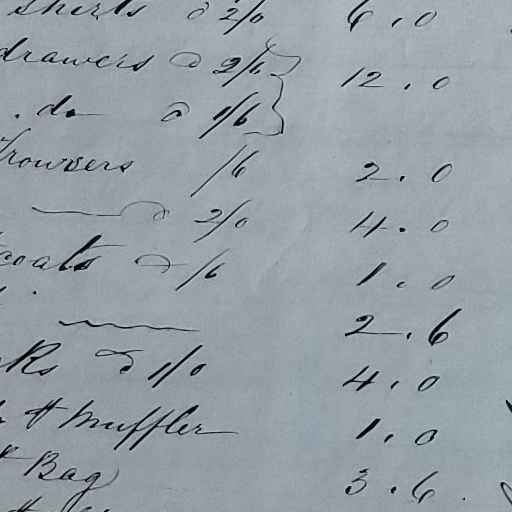 shirts @ 2/0 6.0
drawers @ 2/6 12.0
. do @ 1/6
Trowsers /6 2.0
@ 2/0 4.0
coats @ /6 1.0
2.6
ks @ 1/0 4.0
& Muffler 1.0
& Bag 3.6.